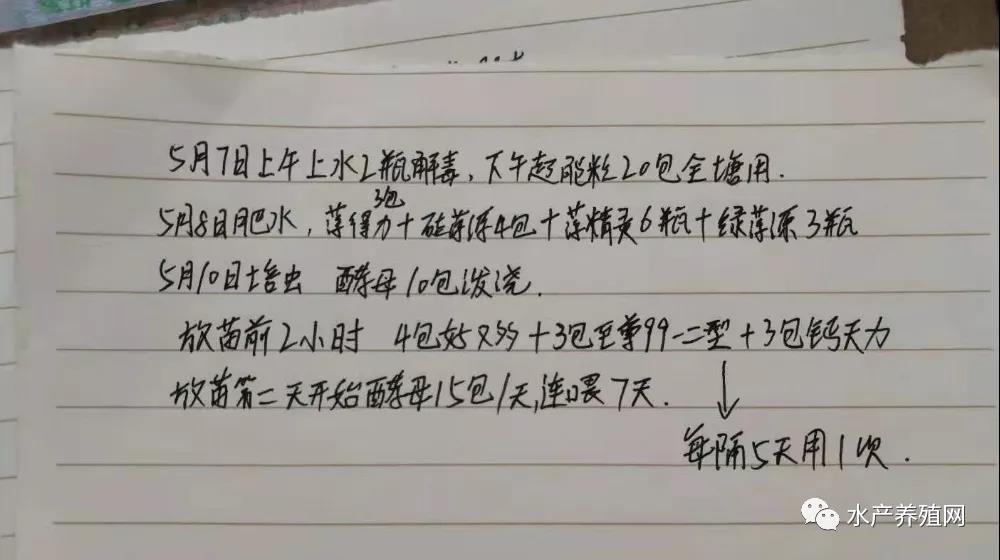 5月7日上午上水2瓶解毒,下午超肥粒20包全塘用.
3包
5月8日肥水,藻得力+硅藻源4包+藻精灵6瓶+绿藻源3瓶
5月10日培虫 酵母10包泼浇.
放苗前2小时 4包好又多+3包至尊99一二型+3包钙天力
放苗第二天开始酵母15包/天,连喂7天.
每隔5天用1次.
水产养殖网